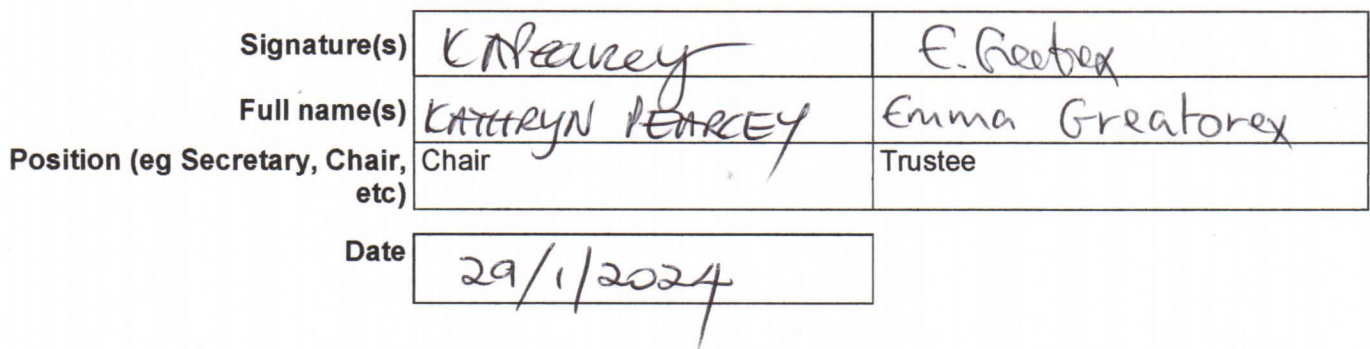 Signature(s) KAPearcey E. Greatorex
Full name(s) KATHRYN PEARCEY Emma Greatorex
Position (eg Secretary, Chair, Chair Trustee
etc)
Date 29/1/2024